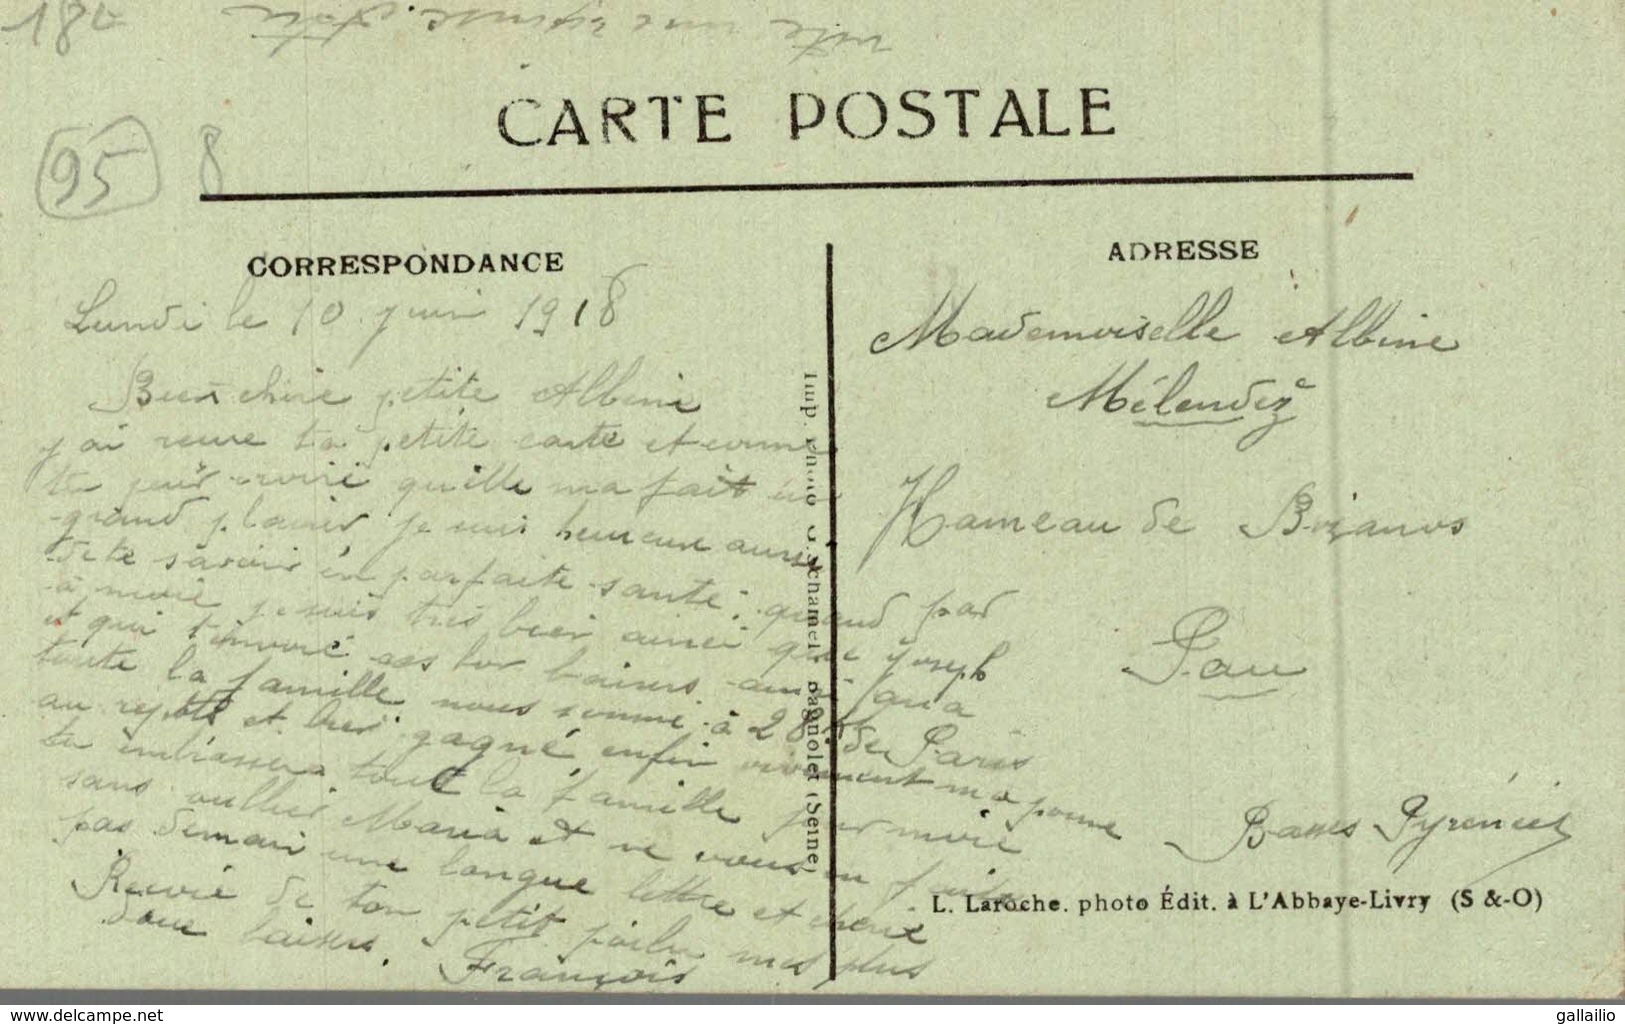 182
vite une réponse.
CARTE POSTALE
95
8
CORRESPONDANCE
Lundi le 10 juin 1918
Bien chère petite Albine
j'ai recue ta petite carte et comme
tu peus croire quelle ma fait un
grand plaisir je suis heureuse aussi
de te savoir en parfaite santé: quand par
à moie je suis très bien ainci que Joseph
et qui t'envoie ses bon baisers ainsi qua
toute la famille nous somme à 28 de Paris
au repos et bien gagné enfin vivement ma perme
tu embrassera tout la famille pour moie
sans oublier Maria et ne vous en faite
pas demain une longue lettre et cherie
Recoie de ton petit poilu mes plus
doux baisers. François
ADRESSE
Mademoiselle Albine
Mélendez
Hameau de Bizanos
Pau
Basses Pyrénées
Imp. Photo Bagnolet (Seine)
L. Laroche. photo Édit. à L'Abbaye-Livry (S &-O)
www.delcampe.net
gallailio